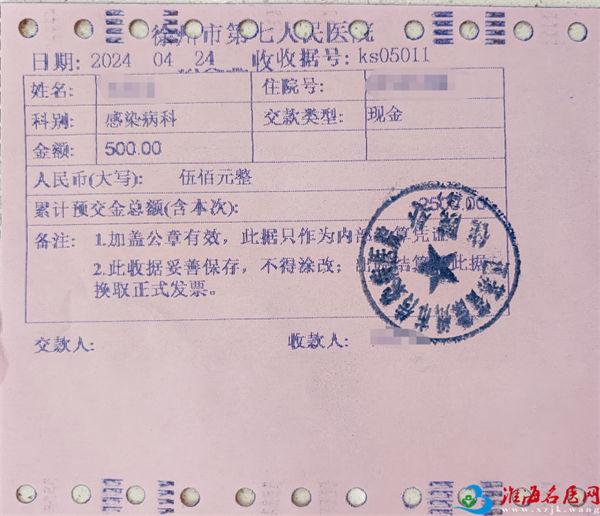 徐州市第七人民医院
日期: 2024 04 24 收收据号: ks05011
姓名: 住院号:
科别: 感染病科 交款类型: 现金
金额: 500.00
人民币(大写): 伍佰元整
累计预交金总额(含本次): 2500.00
备注: 1.加盖公章有效，此据只作为内部结算凭证
2.此收据妥善保存，不得涂改；出院结算 此据
换取正式发票。
交款人: 收款人:
淮海名医网
www.xzjk.wang